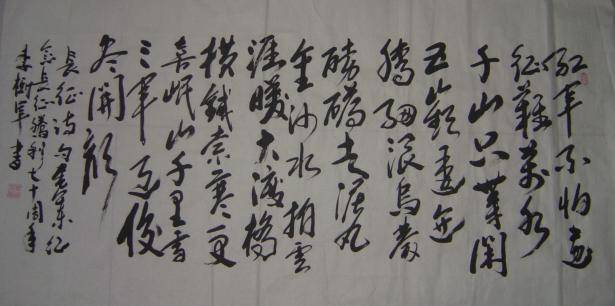 红军不怕远
征难万水
千山只等闲
五岭逶迤
腾细浪乌蒙
磅礴走泥丸
金沙水拍云
涯暖大渡桥
横铁索寒更
喜岷山千里雪
三军过后
尽开颜
长征诗句
念长征胜利七十周年
李树军书